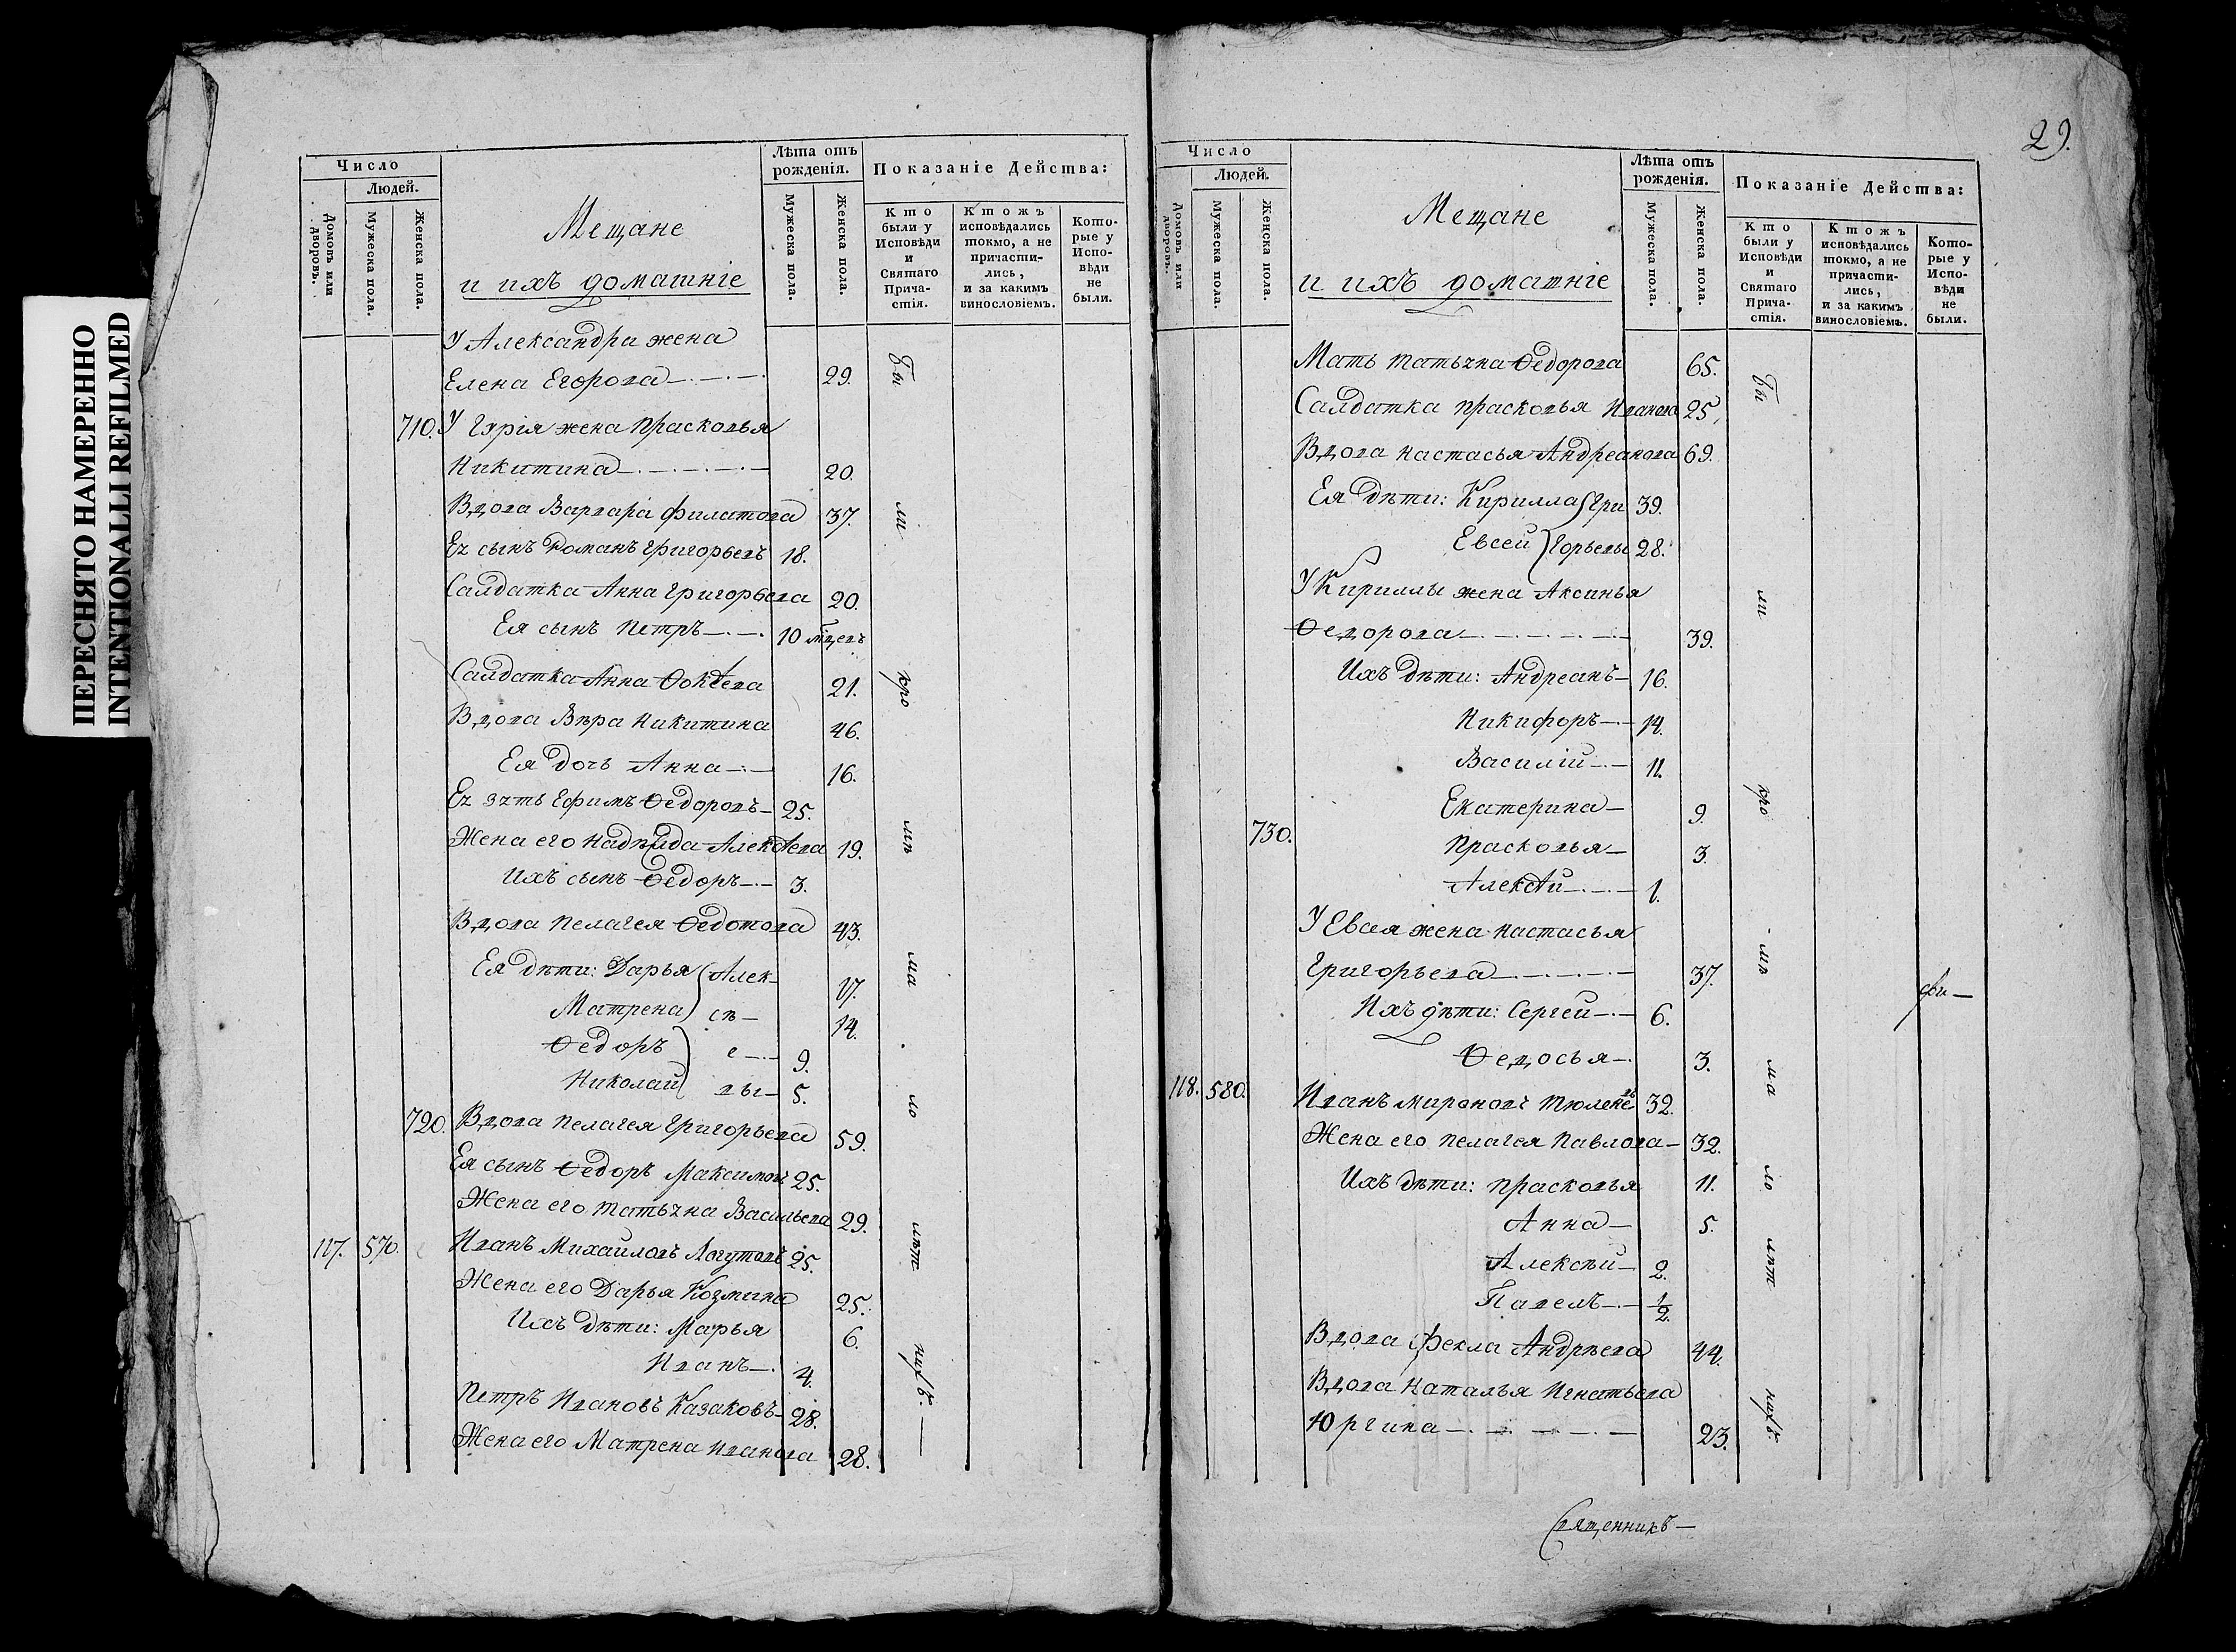 ПЕРЕСНЯТО НАМЕРЕННО
INTENTIONALLI REFILMED
Число
Людей.
Домовъ или дворовъ.
Мужеска пола.
Женска пола.
Мещане
и ихъ домашніе
Лѣта отъ рожденія.
Мужеска пола.
Женска пола.
Показаніе Действа:
Кто были у Исповѣди и Святаго Прича-стія.
Ктожъ исповѣдались токмо, а не причасти-лись, и за какимъ винословіемъ.
Кото-рые у Испо-вѣди не были.
У Александра жена
Елена Егорова 29.
710. У Гурія жена Прасковья
Никитина 20.
Вдова Варвара Филатова 37.
Ея сынъ Романъ Григорьевъ 18.
Салдатка Анна Григорьева 20.
Ея сынъ Петръ 10 мѣцевъ
Салдатка Анна 21.
Вдова Вѣра Никитина 46.
Ея дочь Анна 16.
Ея зять Ефимъ Ѳедоровъ 25.
Жена его Надежда Алексѣева 19.
Ихъ сынъ Ѳедоръ 3.
Вдова Пелагея Ѳедотова 43.
Ея дѣти: Дарья Алек- 17.
Матрена сѣ- 14.
Ѳедоръ е- 9.
Николай вы 5.
720. Вдова Пелагея Григорьева 59.
Ея сынъ Ѳедоръ Максимовъ 25.
Жена его Татьяна Васильева 29.
117. 570. Иванъ Михайловъ Логутовъ 25.
Жена его Дарья Козмина 25.
Ихъ дѣти: Марья 6.
Иванъ 4.
Петръ Ивановъ Казаковъ 28.
Жена его Матрена Иванова 28.
бы
ли
29.
Число
Людей.
Домовъ или дворовъ.
Мужеска пола.
Женска пола.
Мещане
и ихъ домашніе
Лѣта отъ рожденія.
Мужеска пола.
Женска пола.
Показаніе Действа:
Кто были у Исповѣди и Святаго Прича-стія.
Ктожъ исповѣдались токмо, а не причасти-лись, и за какимъ винословіемъ.
Кото-рые у Испо-вѣди не были.
Мать Татьяна Ѳедорова 65.
Салдатка Прасковья Иванова 25,
Вдова Настасья Андреанова 69.
Ея дѣти: Кирилла Гри 39.
Евсей горьевы 28.
У Кириллы жена Аксинья
Ѳедорова 39.
Ихъ дѣти: Андреанъ 16.
Никифоръ 14.
Василій 11.
Екатерина 9.
730. Прасковья 3.
Алексѣй 1.
У Евсея жена Настасья
Григорьева 37.
Ихъ дѣти: Сергей 6.
Ѳедосья 3.
118. 580. Иванъ Мироновъ Тюленевъ 32.
Жена его Пелагея Павлова 32.
Ихъ дѣти: Прасковья 11.
Анна 5.
Алексѣй 2.
Павелъ 1/2.
Вдова Фекла Андрѣева 44.
Вдова Наталья Игнатьева
Юргина 23.
бы
ли
Священникъ